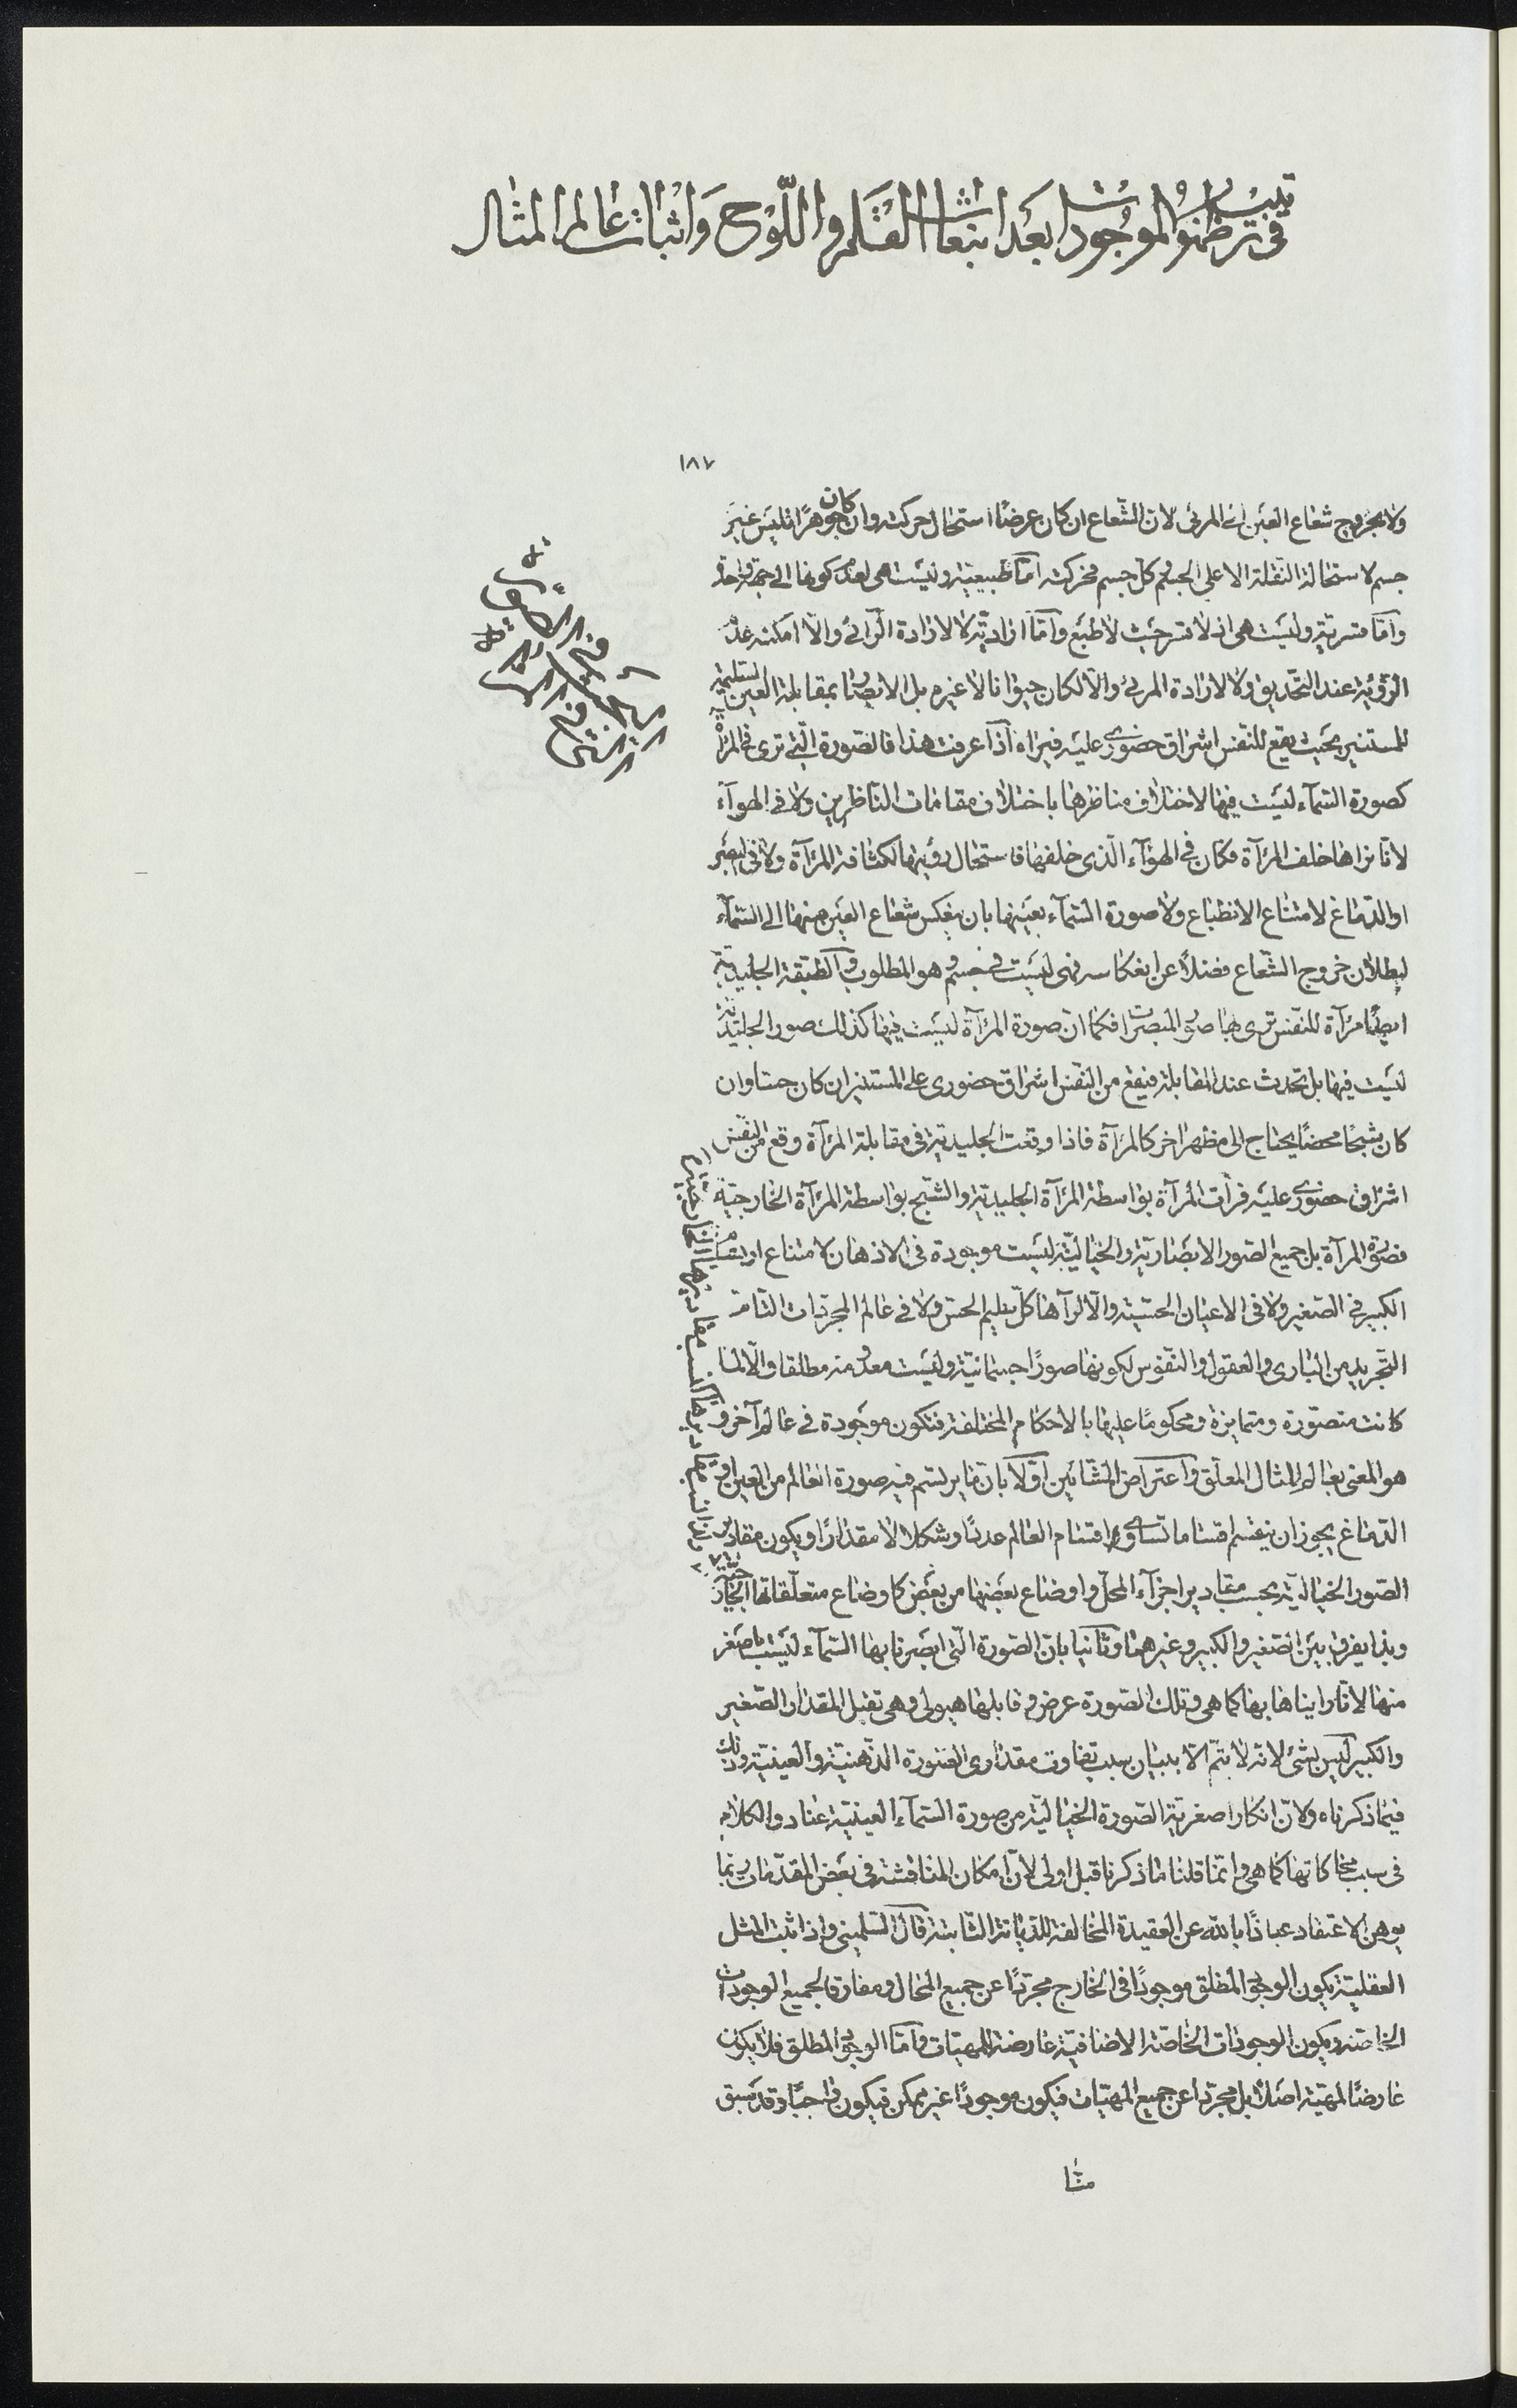 في ترتيب ظهور الموجودات بعد انبعاث القلم واللوح واثبات عالم المثال
١٨٧
ولا بخروج شعاع العين الى المرئى لان الشعاع ان كان عرضًا استحال حركته وان كان جوهرًا فليس غير
جسم لاستحالة النقلة الا على الجسم وكل جسم فحركته اما طبيعية وليست هى لعدم كونها الى جهة واحدة
واما قسرية وليست هى اذ لا قسر حيث لا طبع واما ارادية لا لارادة الرائى والا امكنه عدم
الرؤية عند التحديق ولا لارادة المرئى والا لكان حيوانا لا غير بل الابصار بمقابلة العين السليمة
للمستنير بحيث يقع للنفس اشراق حضورى عليه فيراه اذا عرفت هذا فالصورة التى ترى فى المرآة
كصورة السمآء ليست فيها لاختلاف مناظرها باختلاف مقامات الناظرين ولا فى الهوآء
لانا نراها خلف المرآة فكان فى الهوآء الذى خلفها فاستحال رؤيتها لكثافة المرآة ولا فى البصر
او الدماغ لامتناع الانطباع ولا صورة السمآء بعينها بان ينعكس شعاع العين منها الى السمآء
لبطلان خروج الشعاع فضلًا عن انعكاسه فهى ليست فى جسم وهو المطلوب والطبقة الجليدية
ايضًا مرآة للنفس ترى بها صور المبصرات فكما ان صورة المرآة ليست فيها كذلك صور الجليدية
ليست فيها بل تحدث عند المقابلة فيقع من النفس اشراق حضورى على المستنير ان كان حسا وان
كان شبحًا محضًا يحتاج الى مظهر اخر كالمرآة فاذا وقعت الجليدية فى مقابلة المرآة وقع من النفس
اشراق حضورى عليه فرأت المرآة بواسطة المرآة الجليدية والشبح بواسطة المرآة الخارجية
فصورة المرآة بل جميع الصور الابصارية والخيالية ليست موجودة فى الاذهان لامتناع ارتسام
الكبير فى الصغير ولا فى الاعيان الحسية والا لرآها كل سليم الحس ولا فى عالم المجردات التامة
التجريد من البارى والعقول والنفوس لكونها صورًا جسمانية وليست معدومة مطلقا والا لما
كانت متصورة ومتمايزة ومحكومًا عليها بالاحكام المختلفة فتكون موجودة فى عالم آخر و
هو المعنى بعالم المثال المعلق واعتراض المشائين اولا بان ما يرتسم فيه صورة العالم من العين او
الدماغ يجوز ان ينقسم اقساما تساوى اقسام العالم عددًا وشكلا لا مقدارًا ويكون مقادير
الصور الخيالية بحسب مقادير اجزآء المحل واوضاع بعضها من بعض كاوضاع متعلقاتها الخارجية
وبذا يفرق بين الصغير والكبير وغيرهما وثانيا بان الصورة التى ابصرنا بها السمآء ليست باصغر
منها لانا رايناها بها كما هى وتلك الصورة عرض وقابلها هيولى وهى تقبل المقدار الصغير
والكبير ليس بشئ لانه لا يتم الا ببيان سبب تفاوت مقدارى الصورة الذهنية والعينية وذلك
فيما ذكرناه ولان انكار اصغرية الصورة الخيالية من صورة السمآء العينية عناد والكلام
فى سبب محاكاتها كما هى وانما قلنا ما ذكرنا قبل اولى لان امكان المناقشة فى بعض المقدمات ربما
يوهن الاعتقاد عياذًا بالله عن العقيدة المخالفة للديانة الثابتة قال السلمينى واذا ثبت المثل
العقلية يكون الوجود المطلق موجودًا فى الخارج مجردًا عن جميع المحال ومفارقا لجميع الوجودات
الخاصة ويكون الوجودات الخاصة الاضافية عارضة للمهيات واما الوجود المطلق فلا يكون
عارضًا لمهية اصلًا بل مجردا عن جميع المهيات فيكون موجودًا غير ممكن فيكون واجبًا وقد سبق
منا